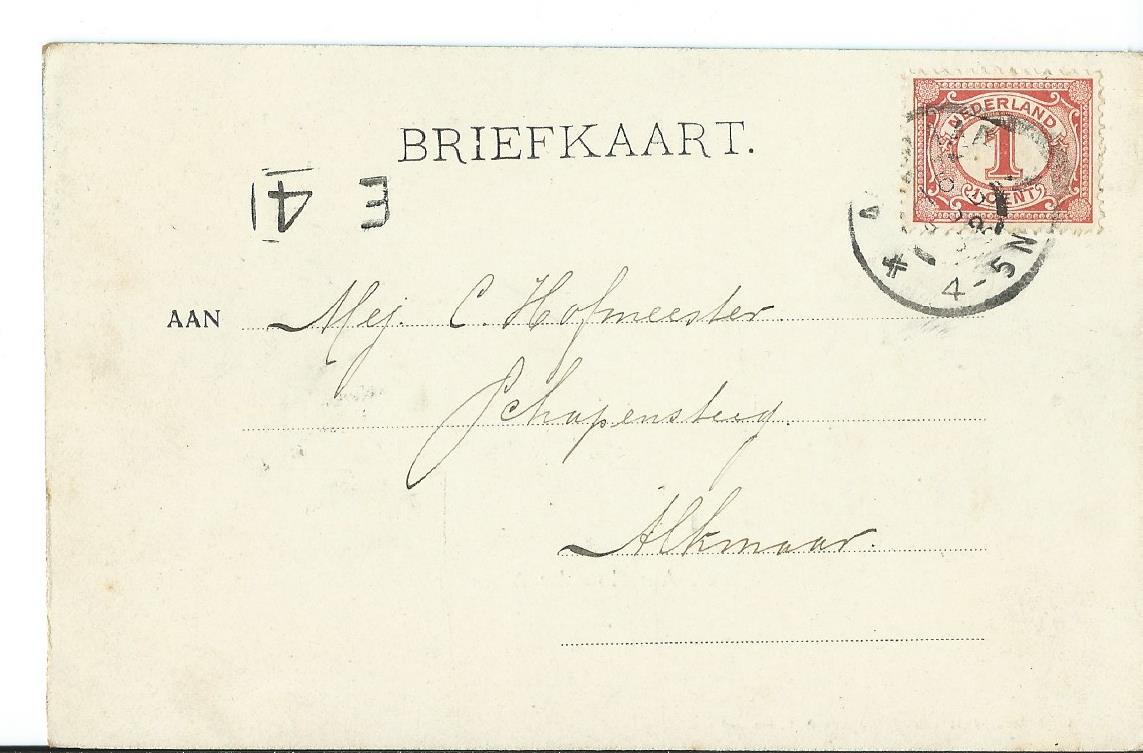 BRIEFKAART.
NEDERLAND
1
CENT
4-5 N
E
4
AAN Mej. C. Hofmeester
Schapensteeg.
Alkmaar.